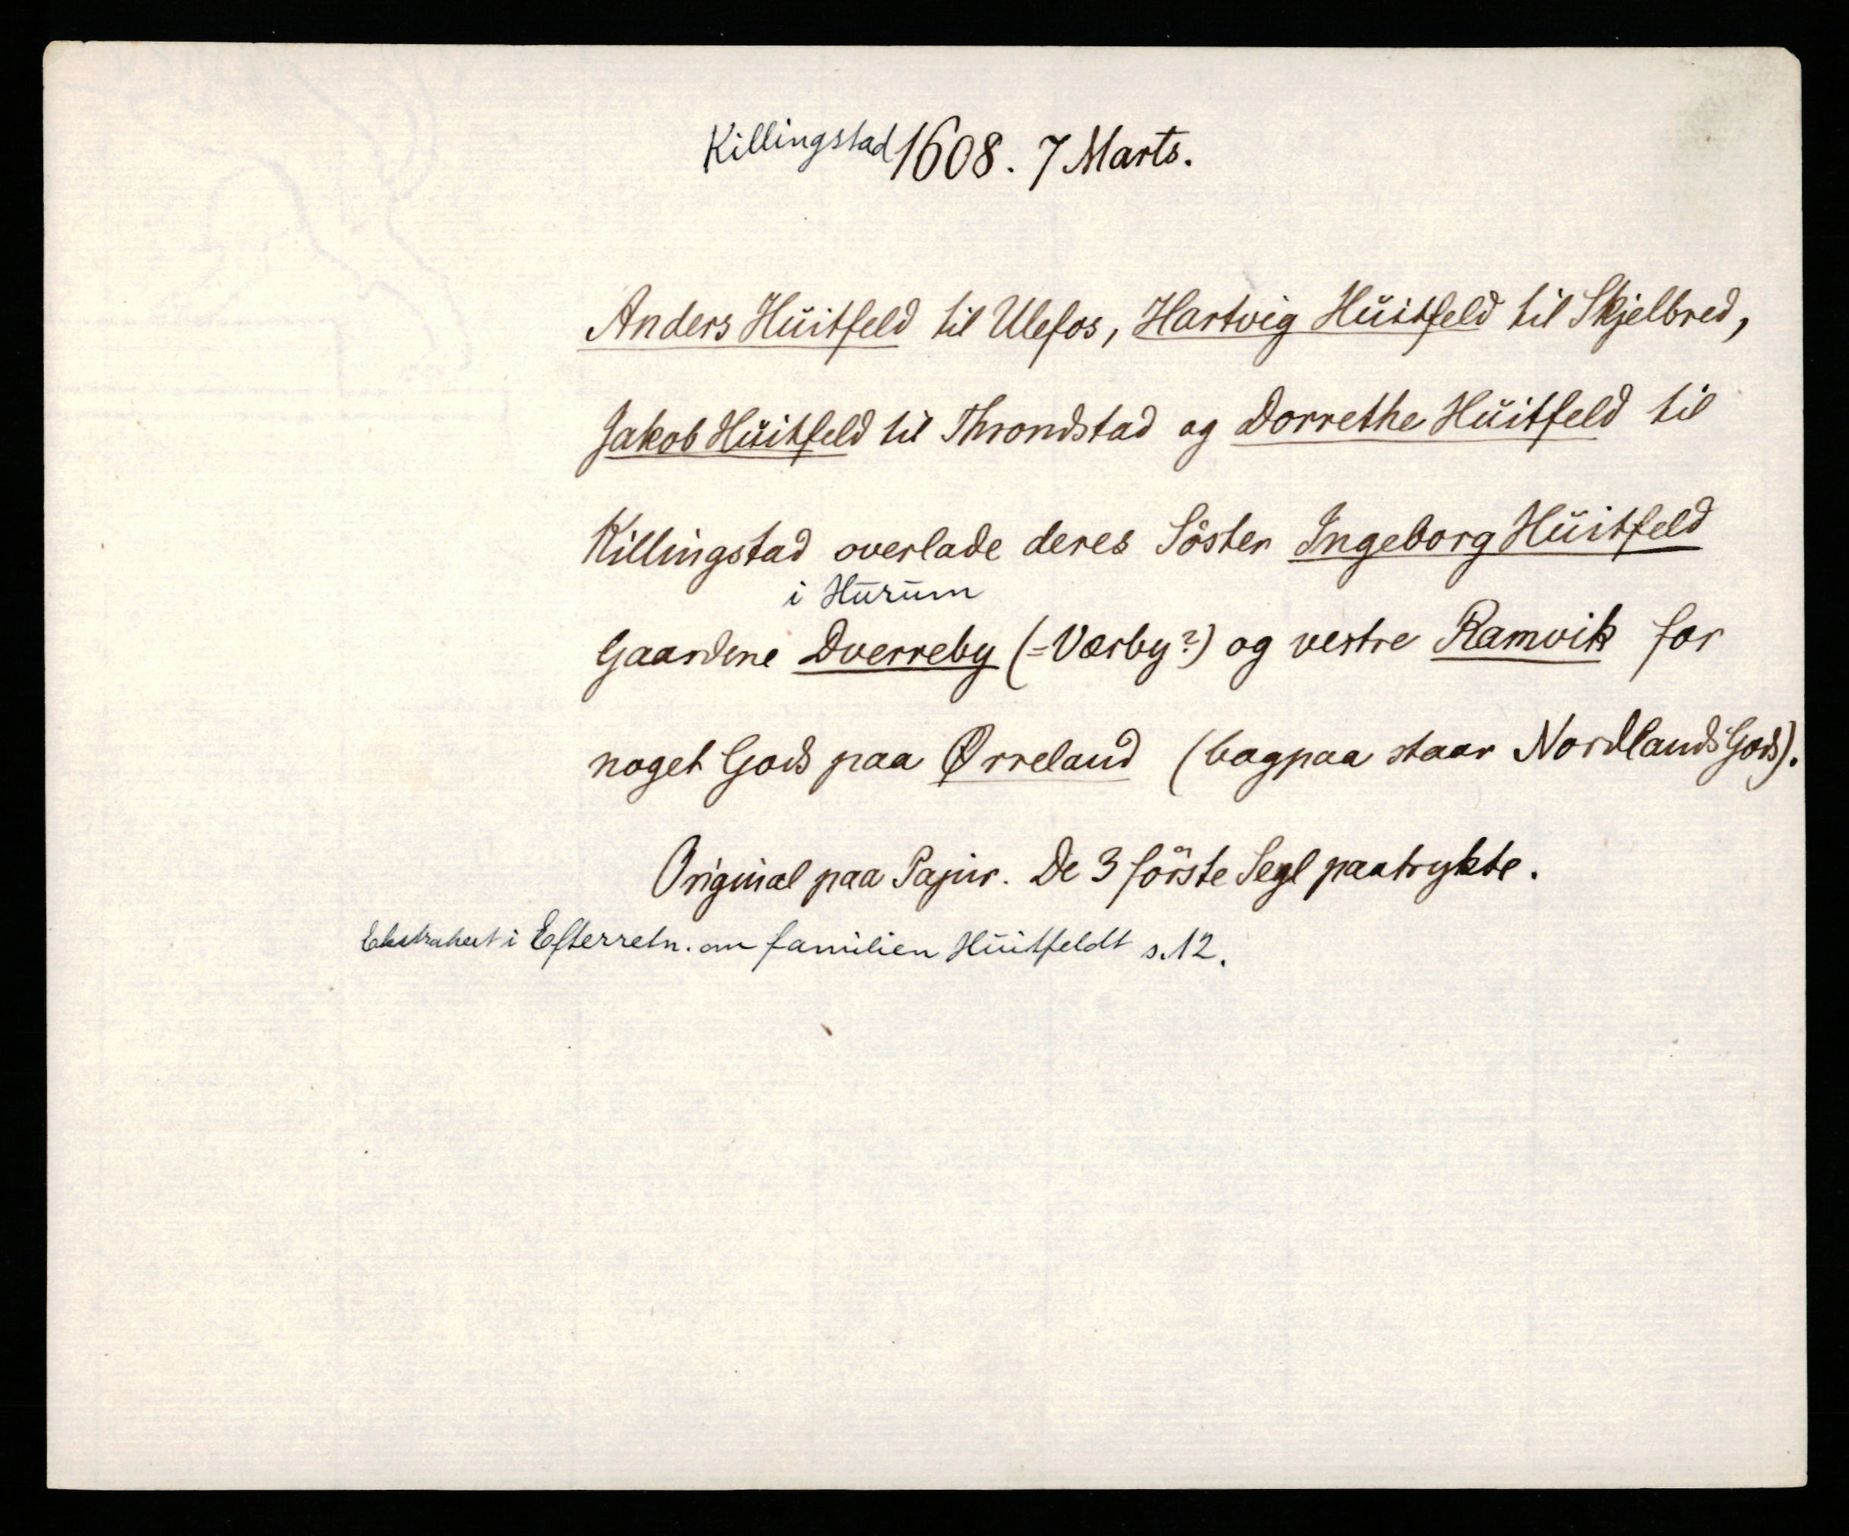 Killingstad 1608. 7 Marts.
Anders Hŭitfeld til Ulefos, Hartvig Hŭitfeld til Skjelbred,
Jakob Hŭitfeld til Throndstad og Dorrethe Hŭitfeld til
Killingstad overlade deres Söster Ingeborg Hŭitfeld
i Hūrūm
Gaardene Dverreby (=Værby?) og vestre Ramvik for
noget Gods paa Ørreland (bagpaa staar Nordlands Gods).
Original paa Papir. De 3 förste Segl paatrykte.
Ekstrahert i Efterretn. om familien Hūitfeldt s. 12.